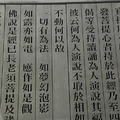 發菩提心者持於此經乃至四
偈等受持讀誦為人演說其福
彼云何為人演說不取於相如
不動何以故
一切有為法 如夢幻泡影
如露亦如電 應作如是觀
佛說是經已長老須菩提及諸